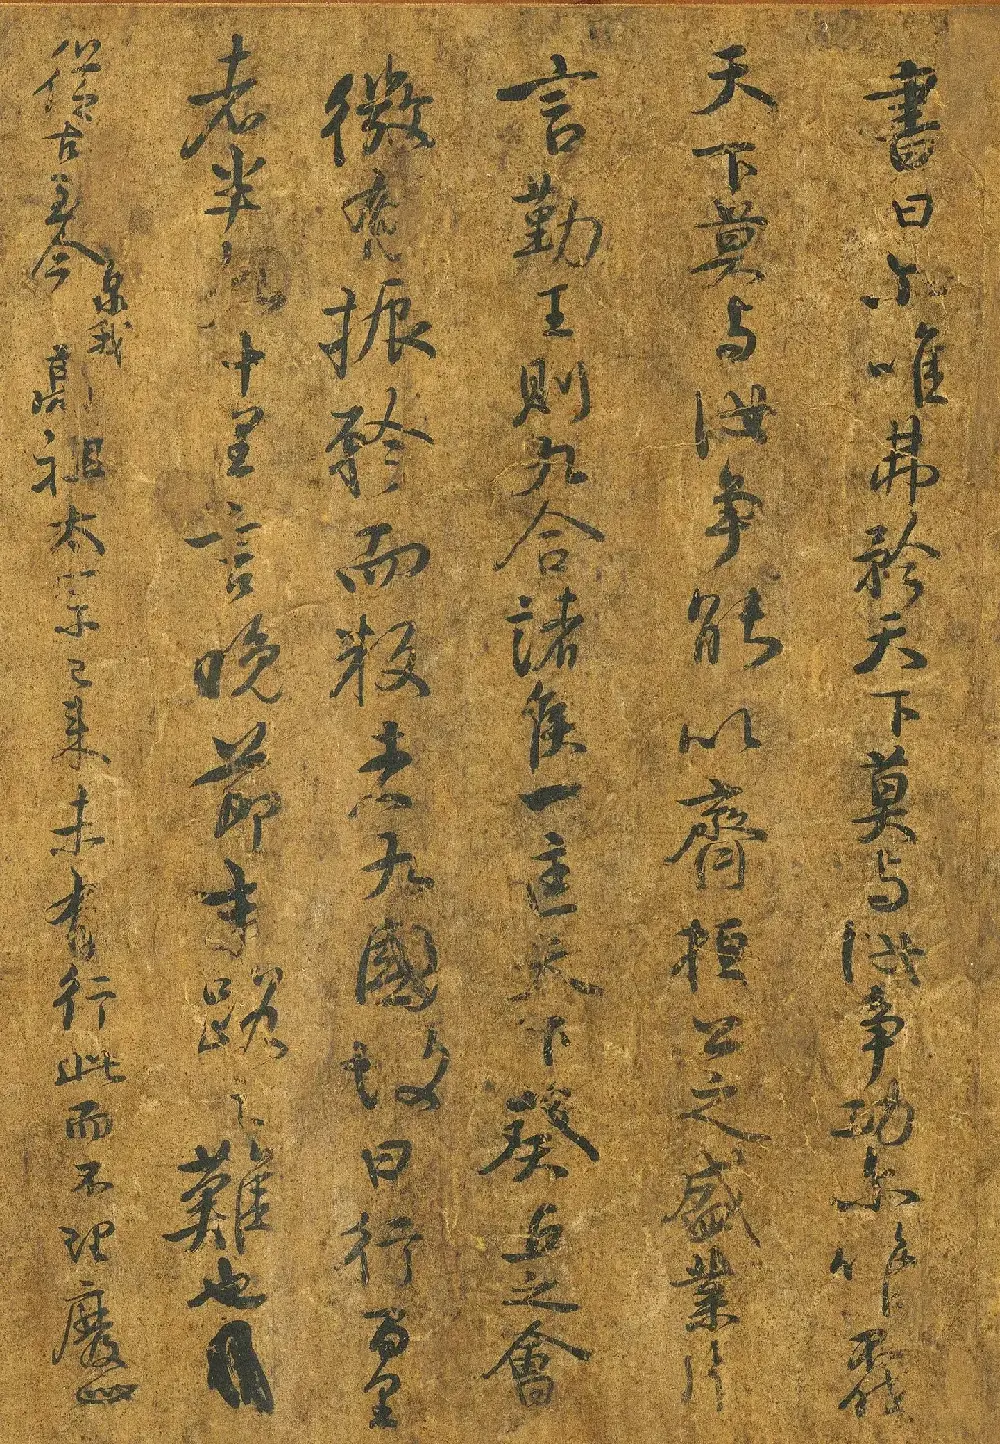 書曰尔唯弗矜天下莫与汝争功尔唯不伐
天下莫与汝争能以齊桓公之盛業片
言勤王則九合諸侯一匡天下葵丘之會
微有振矜而叛者九國故曰行百里
者半九十里言晚節末路之難也
從古至今泉我高祖太宗已来未有行此而不理廢此